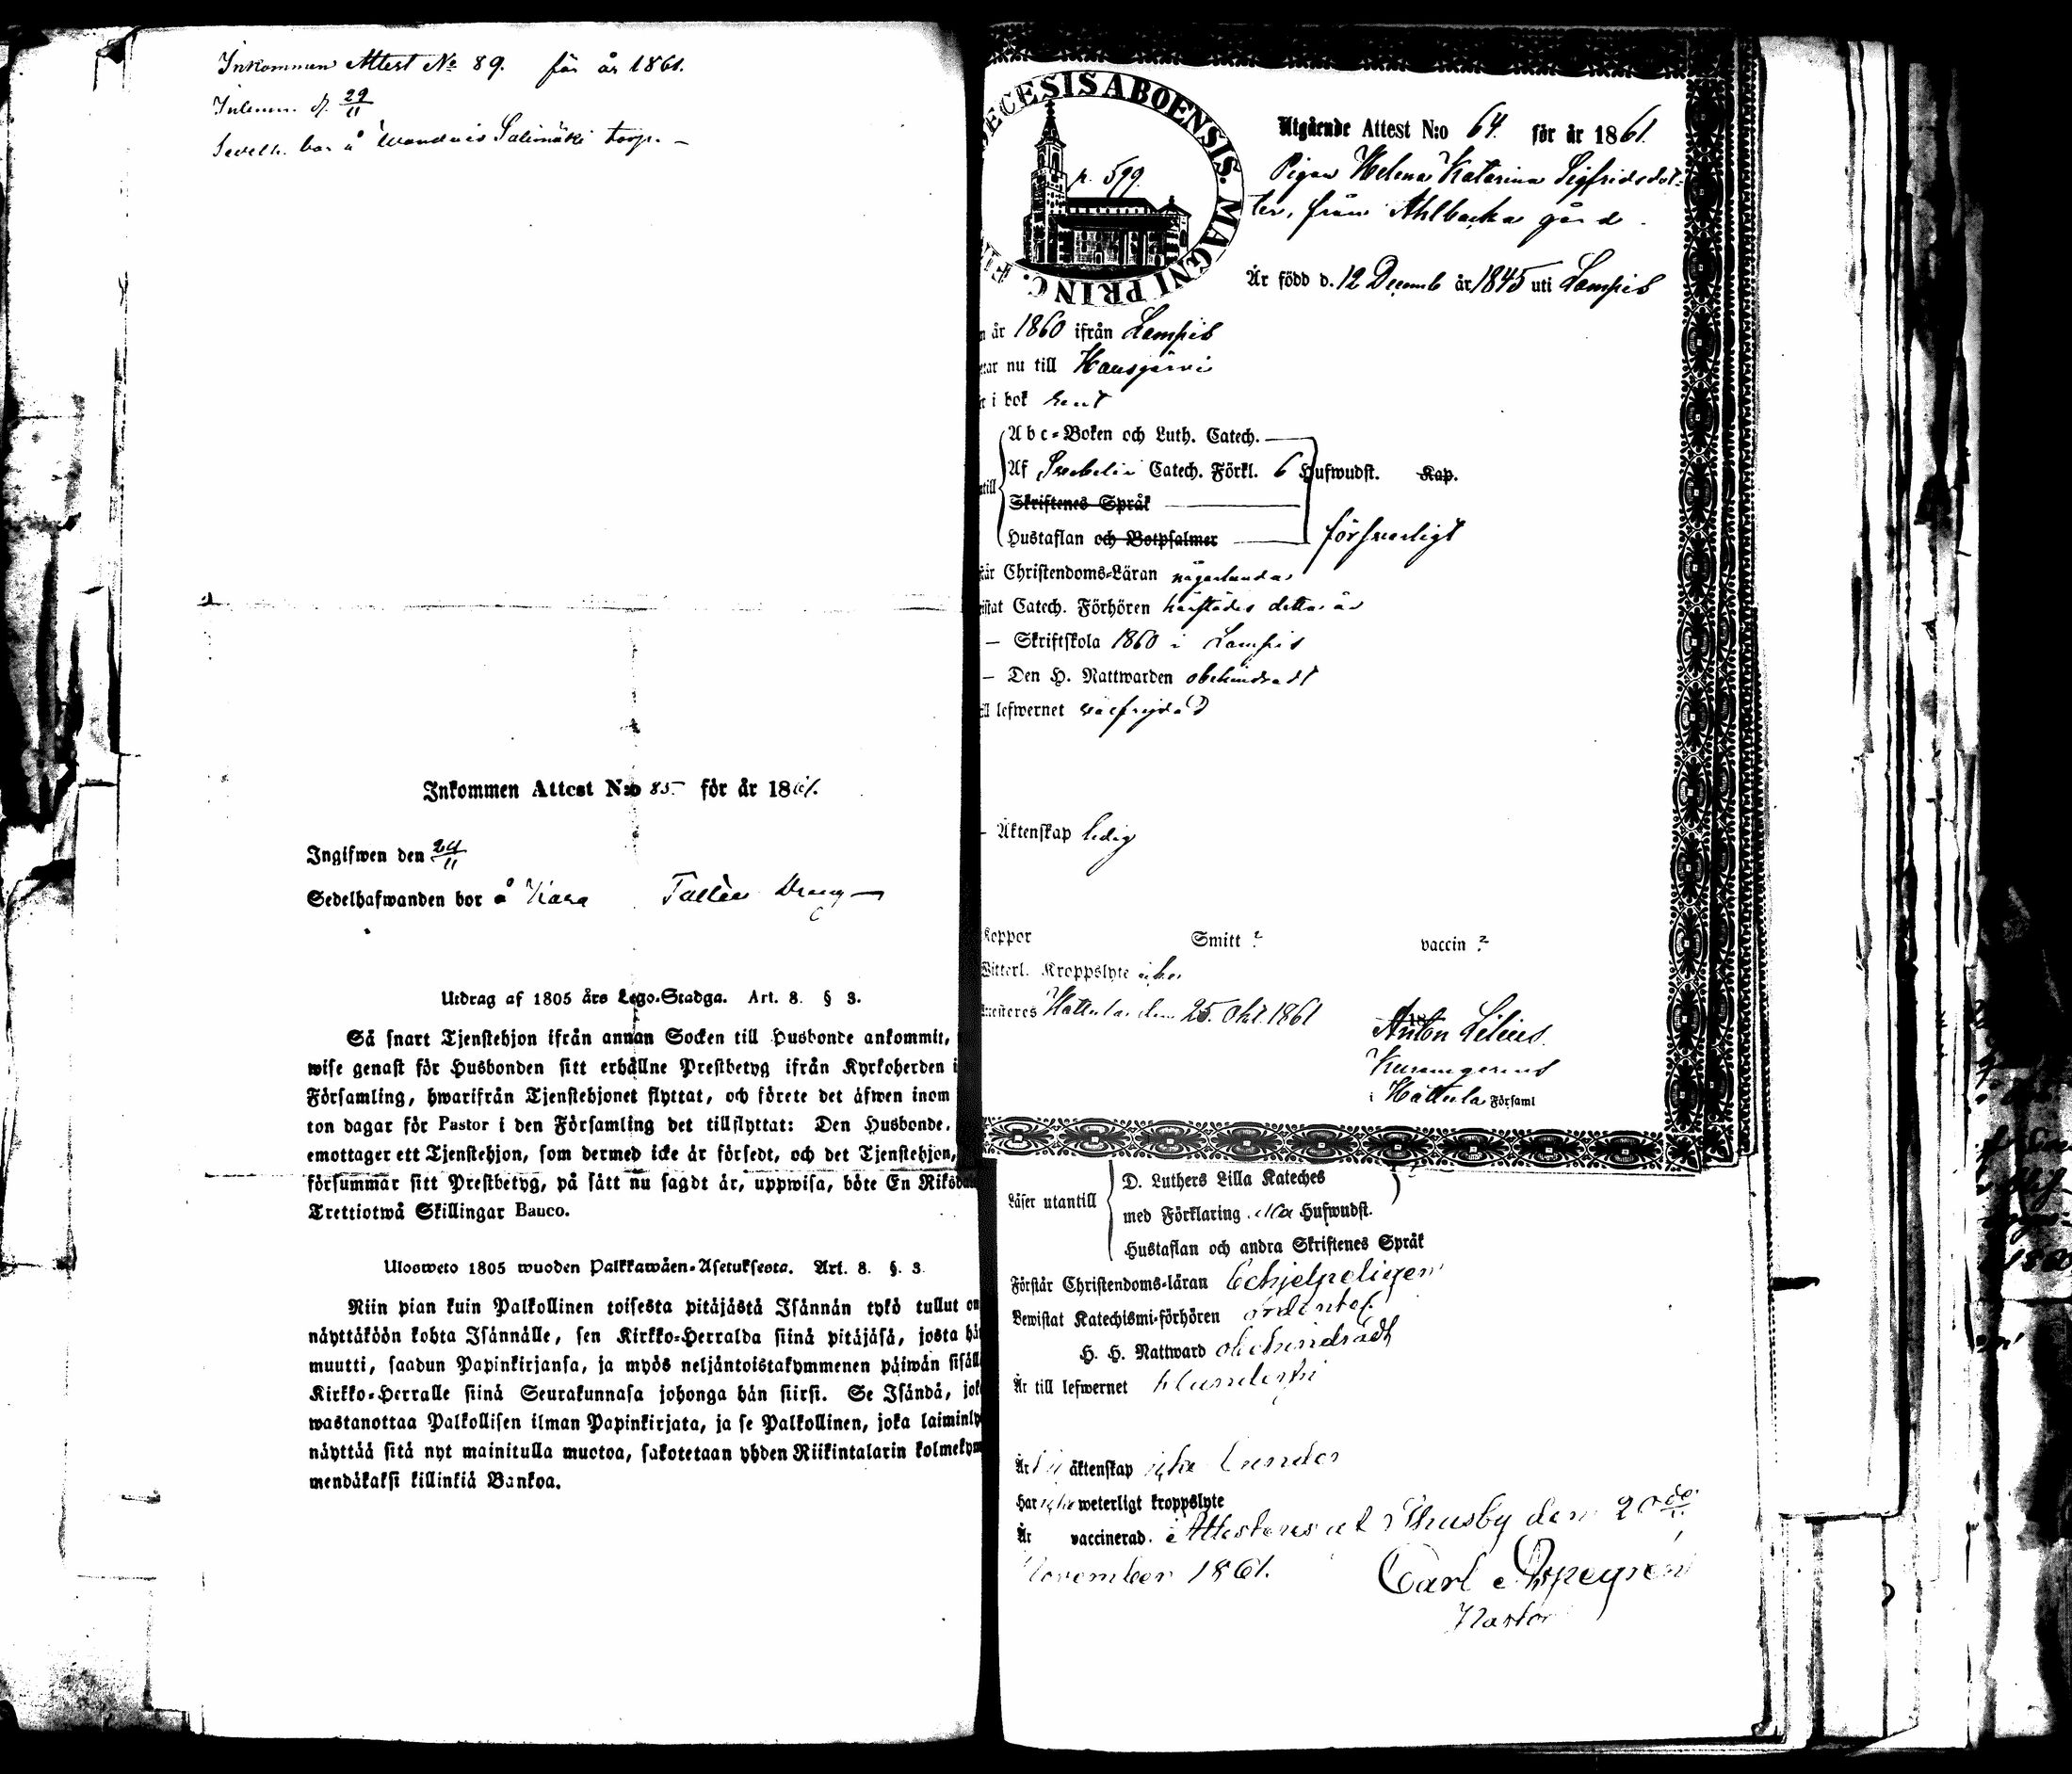 Inkommen Attest No 89. för år 1861.
Inlemn. d. 29/11
Sedelh. bor å Salimäki torp. –
Inkommen Attest N:o 85 för år 1861.
Ingifwen den 24/11
Sedelhafwanden bor å Kara Dreng
Utdrag af 1805 års Lego-Stadga. Art. 8. § 3.
Så snart Tjenstehjon ifrån annan Socken till Husbonde ankommit,
wise genast för Husbonden sitt erhållne Prestbetyg ifrån Kyrkoherden i
Församling, hwarifrån Tjenstehjonet flyttat, och förete det äfwen inom
ton dagar för Pastor i den Församling det tillflyttat: Den Husbonde,
emottager ett Tjenstehjon, som dermed icke är försedt, och det Tjenstehjon,
försummar sitt Prestbetyg, på sätt nu sagdt är, uppwisa, böte En Riksdal
Trettiotwå Skillingar Banco.
Ulosweto 1805 wuoden Palkkawäen-Asetuksesta. Art. 8. §. 3.
Niin pian kuin Palkollinen toisesta pitäjästä Isännän tykö tullut on
näyttäköön kohta Isännälle, sen Kirkko-Herralda siinä pitäjäsä, josta hä
muutti, saadun Papinkirjansa, ja myös neljäntoistakymmenen päiwän sisäll
Kirkko-Herralle siinä Seurakunnasa johonga hän siirsi. Se Isändä, jok
wastanottaa Palkollisen ilman Papinkirjata, ja se Palkollinen, joka laiminly
näyttää sitä nyt mainitulla muotoa, sakotetaan yhden Riikintalarin kolmekym
mendäkaksi killinkiä Bankoa.
DECESIS ABOENSIS. MAGNI PRINC. FI
p. 599.
Utgående Attest N:o 64. för år 1861.
Pigan Helena Katarina Sigfridsdot=
ter, från Ahlbacka gård.
Är född d. 12 Decemb år 1845 uti Lampis
n år 1860 ifrån Lampis
nu till Hausjärvi
i bok rent
Abc=Boken och Luth. Catech.
Af Svebelii Catech. Förkl. 6 Hufwudst. Kap.
Skriftenes Språk
Hustaflan och Botpsalmer försvarligt
Christendoms=Läran någorlunda
Catech. Förhören härstädes detta år
– Skriftskola 1860 i Lampis
– Den H. Nattwarden obehindradt
lefwernet välfrejdad
– Äktenskap ledig
Koppor Smitt ? vaccin ?
Witterl. Kroppslyte icke
Hattula den 25. Okt. 1861
Anton Lilius.
i Hattula Församl
Läser utantill
D. Luthers Lilla Kateches
med Förklaring alla Hufwudst.
Hustaflan och andra Skriftenes Språk
Förstår Christendoms-läran
Bewistat Katechismi-förhören ordentel.
H. H. Nattward obehindradt
Är till lefwernet klanderfri
Är i äktenskap icke bunden
Har icke weterligt kroppslyte
Är vaccinerad. Attesteras at Thusby den 20de
November 1861. Carl
Pastor